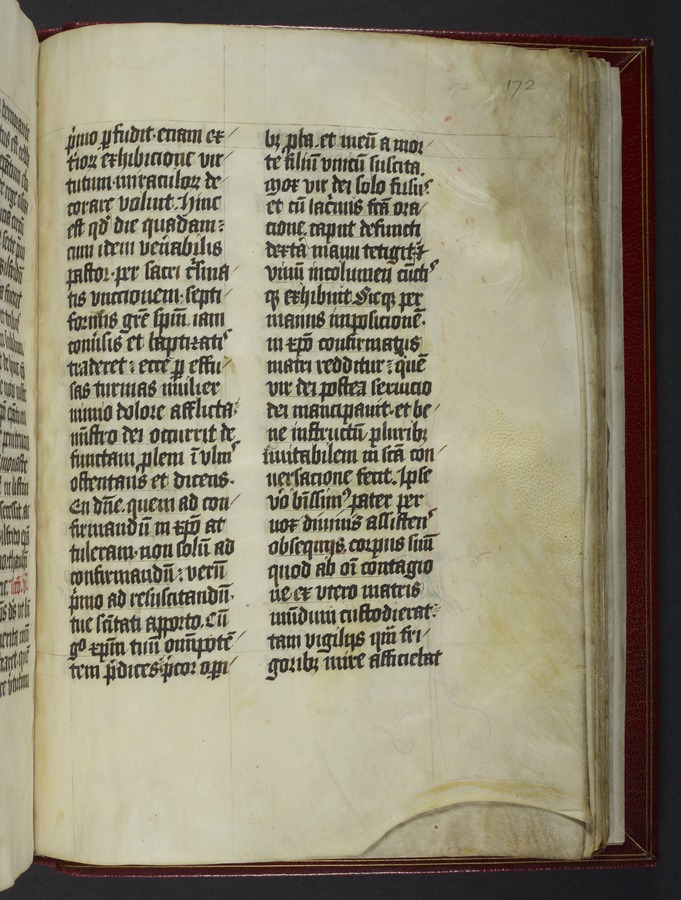 172
pͥmo ꝑfudit. etiam ex
tioꝝ exhibicione vir
tutum. miraculoꝝ de
corare voluit. Hinc
est qd̄ die quadam:
cum idem ven̄abilis
pastor. per sacri cr̄isma
tis vnctionem. septi
formis gr̄e sp̄m. iam
conūsis et baptizatꝭ
traderet: ecce ꝑ effu
sas turmas mulier
nimio dolore afflicta:
mīstro dei occurrit de
functam ꝓlem ī vlnꝭ
ostentans et dicens.
En dn̄e. quem ad con
firmandū in xp̄o at
tuleram. non solū ad
confirmandū: verū
pͥmo ad resuscitandū.
tue sc̄itati apporto. Cū
gͦ xp̄m tuū omīpotē
tem p̄dices: p̄cor opi
bꝫ ꝓba. et meū a mor
te filiū vnicū suscita.
Mox vir dei solo fusꝰ
et cū lacͥmis fc̄a ora
cione. caput defuncti
dextᵃ manu tetigit: ⁊
viuū incolumen cūctꝭ
qꝫ exhibuit. Sicqꝫ per
manus imposicionē.
in xp̄o confirmatus
matri redditur: quē
vir dei postea seruicio
dei mancipauit. et be
ne instructū pluribꝫ
imitabilem in sc̄a con
uersacione fecit. Ipse
vo᷎ bt̄issimꝰ pater per
uox diuinis assistens
obsequijs. corpus suū
quod ab oī contagio
ue ex vtero matris
mūdum custodierat:
tam vigilijs qͣm fri
goribꝫ mire afficiebat